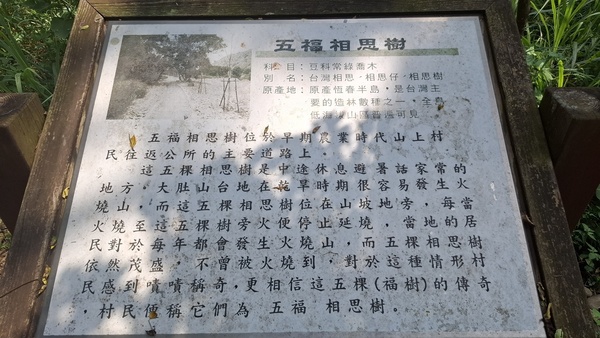 五福相思樹
科 目：豆科常綠喬木
別 名：台灣相思，相思仔，相思樹
原產地：原產恆春半島，是台灣主
要的造林數種之一，全島
低海拔山區普遍可見
五福相思樹位於早期農業時代山上村
民往返公所的主要道路上．
這五棵相思樹是中途休息避暑話家常的
地方，大肚山台地在乾旱時期很容易發生火
燒山，而這五棵相思樹位在山坡地旁，每當
火燒至這五棵樹旁火便停止延燒，當地的居
民對於每年都會發生火燒山，而五棵相思樹
依然茂盛，不曾被火燒到，對於這種情形村
民感到嘖嘖稱奇，更相信這五棵(福樹)的傳奇
，村民便稱它們為 五福 相思樹。